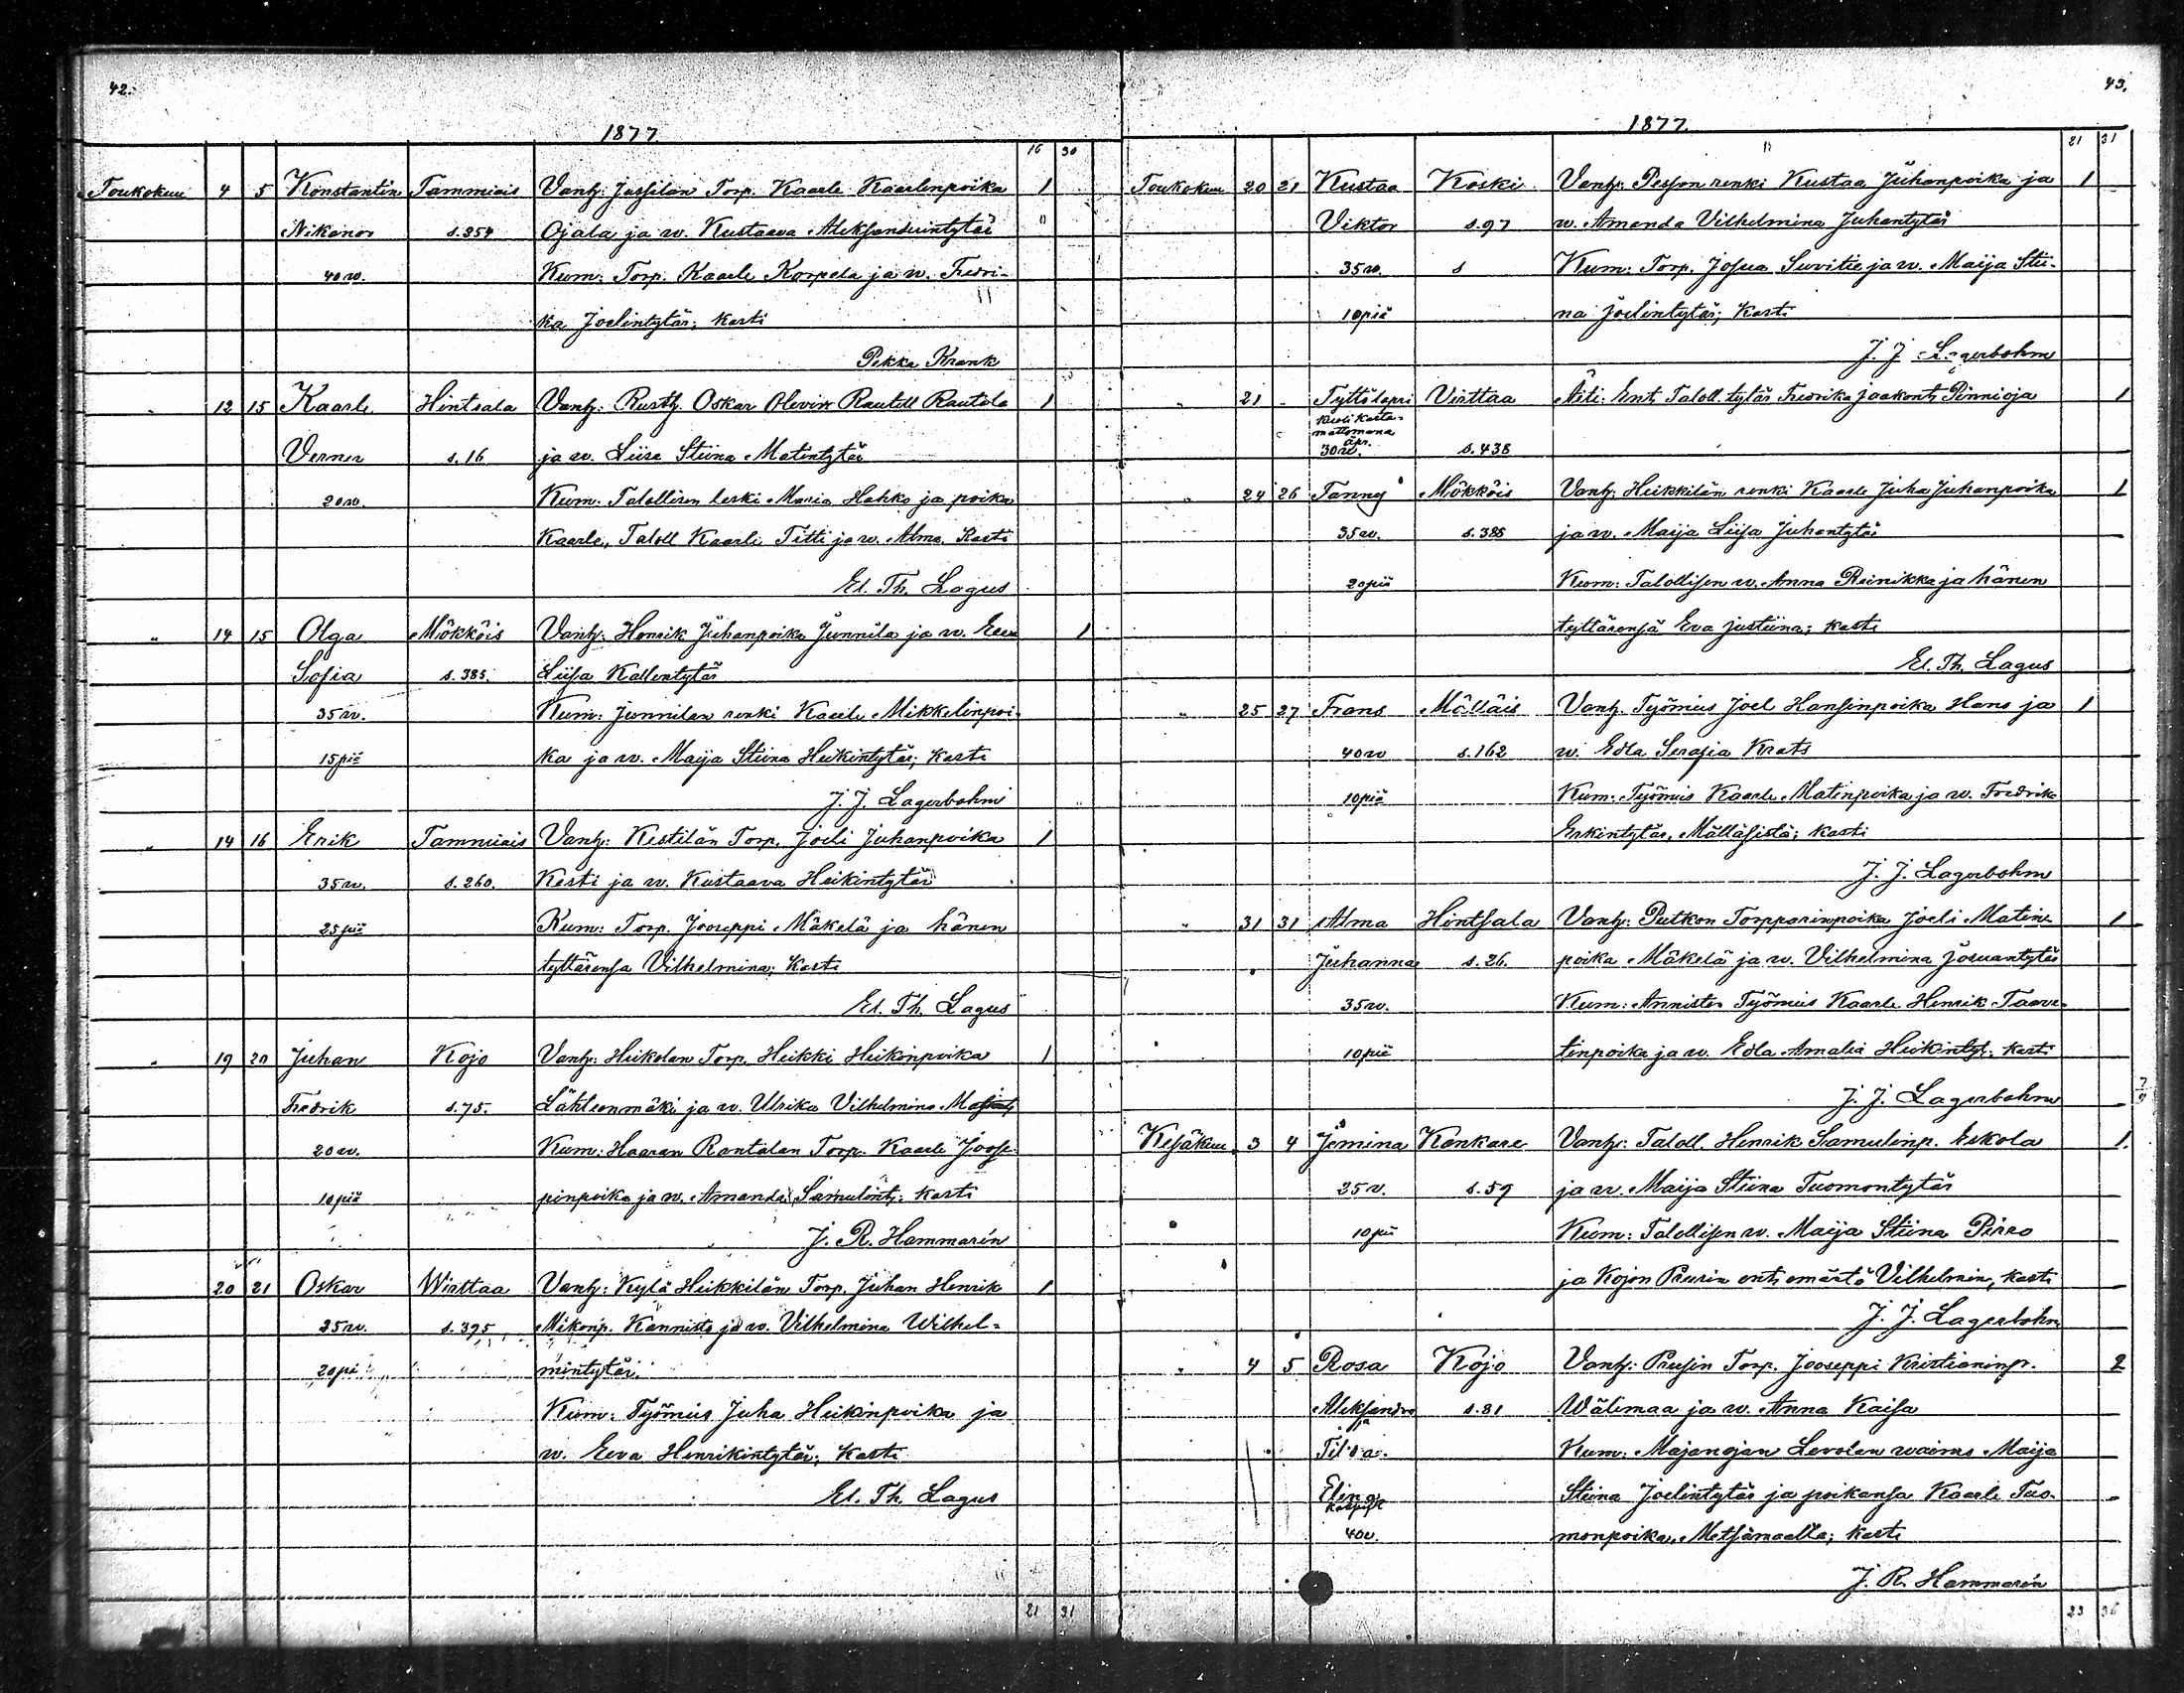 42.
1877.
16 30
Toukokuu 4 5 Konstantin Tammiais Vanh: Jassilan Torp. Kaarle Kaarlenpoika 1
Nikanor s.354 Ojala ja w. Kustaava Aleksanderintytär "
40 w. Kum: Torp. Kaarle Korpela ja w. Fredri-
ka Joelintytär; kasti
Pekka Krank
" 12 15 Kaarle Hintsala Vanh: Rusth. Oskar Olevin Rautell Rautila 1
Verner s.16 ja w. Liisa Stiina Matintytär
20 w. Kum: Talollisen leski Maria Hahko ja poika
Kaarle, Taloll Kaarle Titti ja w. Alma. Kasti
El. Th. Lagus
" 14 15 Olga Mökköis Vanh: Henrik Juhanpoika Junnila ja w. Eeva 1
Sofia s.385. Liisa Kallentytär
35 w. Kum: Junnilan renki Kaarle Mikkelinpoi-
15 piä ka ja w. Maija Stiina Heikintytär; kasti
J. J. Lagerbohm
" 14 16 Erik Tammiais Vanh: Kestilän Torp. Joeli Juhanpoika 1
35 w. s.260. Kesti ja w. Kustaava Heikintytär
25 piä Kum: Torp. Jooseppi Mäkelä ja hänen
tyttärensa Vilhelmina; kasti
El. Th. Lagus
" 19 20 Juhan Kojo Vanh: Heikolan Torp. Heikki Heikinpoika 1
Fredrik s.75. Lähteenmäki ja w. Ulrika Vilhelmina
20 w. Kum: Haaran Rantalan Torp. Kaarle Joose-
10 piä pinpoika ja w. Amanda Samulint; kasti
J. R. Hammarén
20 21 Oskar Wirttaa Vanh: Kylä Heikkilän Torp. Juhan Henrik 1
25 w. s.395 Mikonp. Kannisto ja w. Vilhelmina Wilhel-
20 pi mintytär.
Kum: Työmies Juha Heikinpoika ja
w. Eeva Henrikintytär; kasti
El. Th. Lagus
21 31
43.
1877.
21 31
Toukokuu 20 21 Kustaa Koski Vanh: Pesson renki Kustaa Juhanpoika ja 1
Viktor s.97 w. Amanda Vilhelmina Juhantytär
35 w. s Kum: Torp. Josua Suvitie ja w. Maija Stii-
10 piä na Joelintytär; kasti
J. J. Lagerbohm
" 21 - Tyttölapsi Virttaa Äiti: Ent. Taloll. tytär Fredrika Jaakont. Pinnioja 1
kuoli kasta-
mattomana
äpr.
30 w. s.438
" 24 26 Fanny Mökköis Vanh: Heikkilän renki Kaarle Juha Juhanpoika 1
35 w. s.388 ja w. Maija Liisa Juhantytär
20 piä Kum: Talollisen w. Anna Reinikka ja hänen
tyttärensä Eva Justiina; kasti
El. Th. Lagus
" 25 27 Frans Mälläis Vanh. Työmies Joel Hansinpoika Hans ja 1
40 w s.162 w. Edla Serafia Krats
10 piä Kum: Työmies Kaarle Matinpoika ja w. Fredrika
Erkintytär, Mälläsistä; kasti
J. J. Lagerbohm
" 31 31 Alma Hintsala Vanh: Putkon Torpparinpoika Joeli Matin- 1
Juhanna s.26. poika Mäkelä ja w. Vilhelmina Josuantytär
35 w. Kum: Anniston Työmies Kaarle Henrik Taave-
10 piä tinpoika ja w. Edla Amalia Heikintyt. kasti
J. J. Lagerbohm
Kesäkuu 3 4 Jemina Kankare Vanh: Taloll. Henrik Samulinp. Eskola 1.
25 v. s.59 ja w. Maija Stiina Tuomontytär
10 pii Kum: Talollisen w. Maija Stiina Pirro
ja Kojon Preusin ent. emäntä Vilhelmin, kasti
J. J. Lagerbohm
" 4 5 Rosa Kojo Vanh: Prusin Torp. Jooseppi Kristianinp. 2
Aleksandra s.81 Wälimaa ja w. Anna Kaisa
ja
Kum: Majanojan Levolan waimo Maija
Elina Stiina Joelintytär ja poikansa Kaarle Tuo-
40 v. monpoika, Metsämaalta; kasti
J. R. Hammarén
23 36